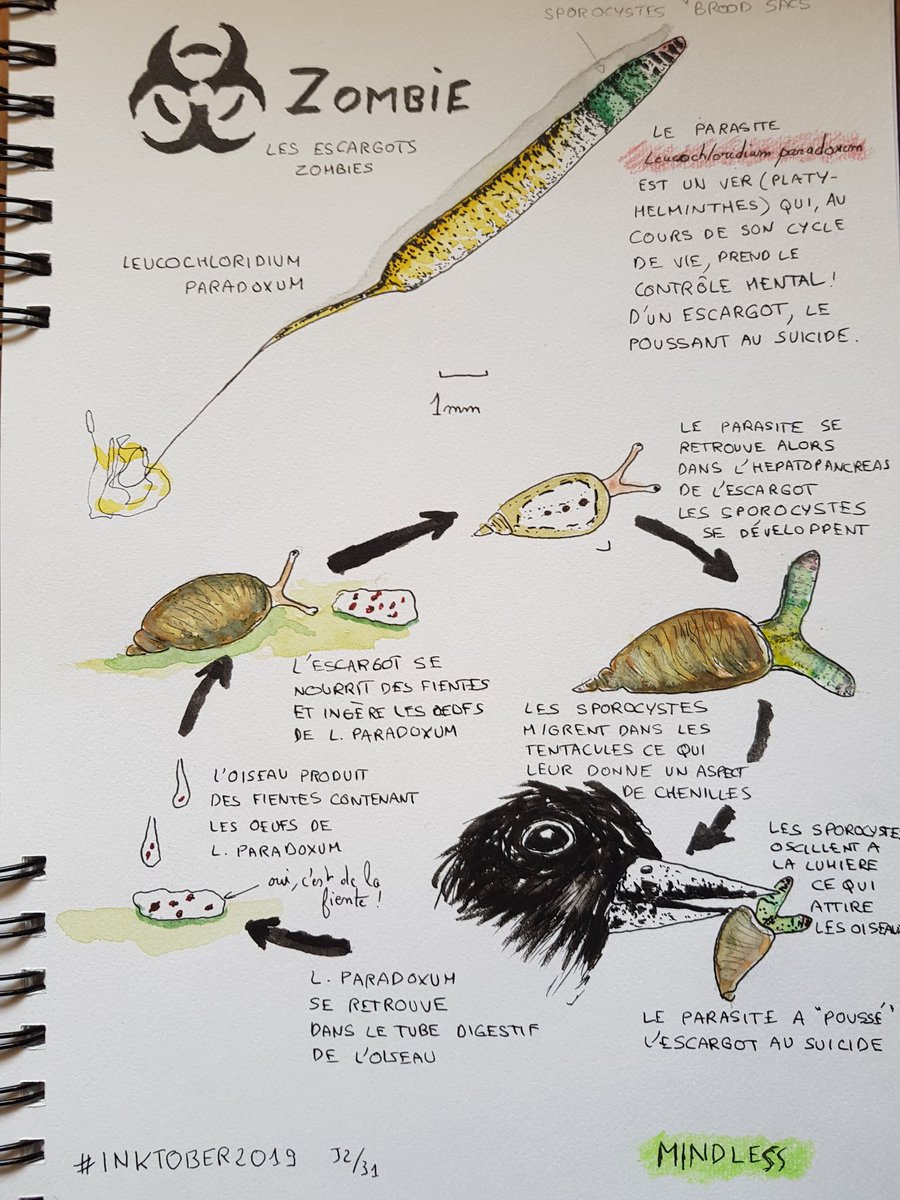 SPOROCYSTES "BROOD SACS
ZOMBIE
LES ESCARGOTS
ZOMBIES
LEUCOCHLORIDIUM
PARADOXUM
LE PARASITE
Leucochloridium paradoxum
EST UN VER (PLATY-
HELMINTHES) QUI, AU
COURS DE SON CYCLE
DE VIE, PREND LE
CONTRÔLE MENTAL!
D'UN ESCARGOT, LE
POUSSANT AU SUICIDE.
1mm
LE PARASITE SE
RETROUVE ALORS
DANS L'HEPATOPANCREAS
DE L'ESCARGOT
LES SPOROCYSTES
SE DÉVELOPPENT
L'ESCARGOT SE
NOURRIT DES FIENTES
ET INGÈRE LES OEUFS
DE L. PARADOXUM
LES SPOROCYSTES
MIGRENT DANS LES
TENTACULES CE QUI
LEUR DONNE UN ASPECT
DE CHENILLES
L'OISEAU PRODUIT
DES FIENTES CONTENANT
LES OEUFS DE
L. PARADOXUM
oui, c'est de la
fiente!
LES SPOROCYSTE
OSCILLENT A
LA LUMIERE
CE QUI
ATTIRE
LES OISEAU
L. PARADOXUM
SE RETROUVE
DANS LE TUBE DIGESTIF
DE L'OISEAU
LE PARASITE A "POUSSÉ"
L'ESCARGOT AU SUICIDE
#INKTOBER2019 J2/31
MINDLESS